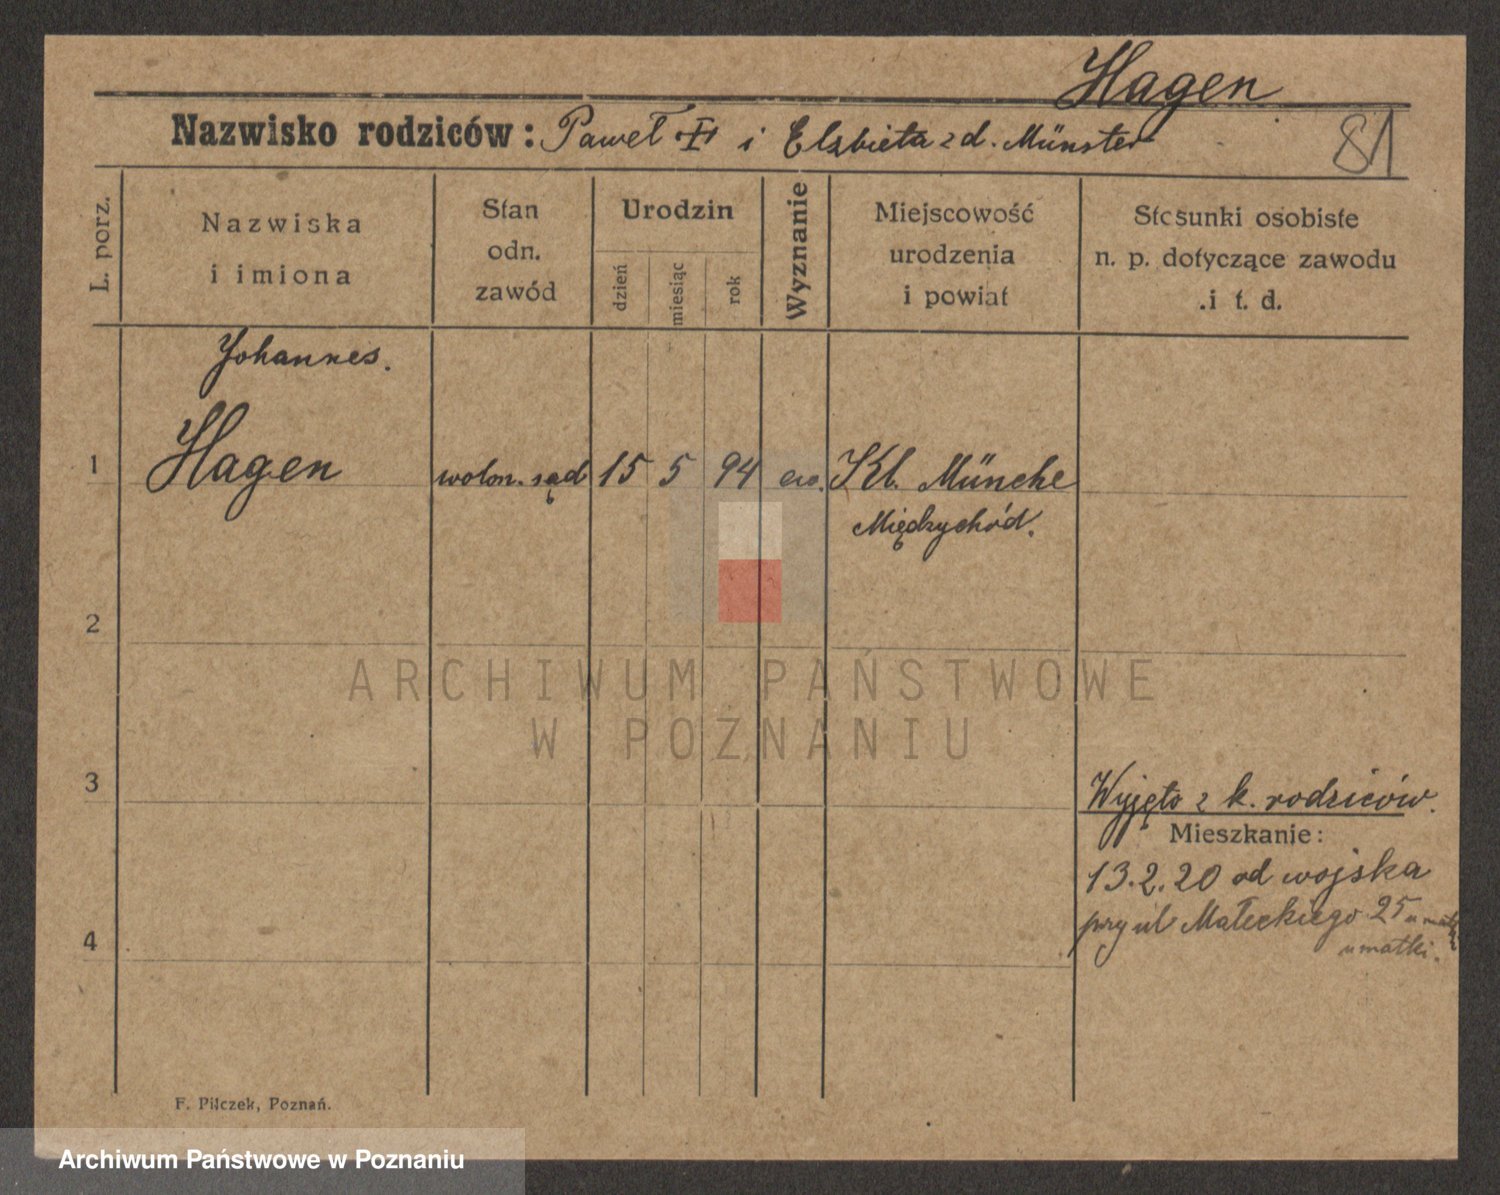 Hagen
Nazwisko rodziców: Paweł + i Elzbieta z d. Münster
81
L. porz.
Nazwiska
i imiona
Stan
odn.
zawód
Urodzin
dzień
miesiąc
rok
Wyznanie
Miejscowość
urodzenia
i powiat
Stosunki osobiste
n. p. dotyczące zawodu
.i t. d.
Johannes.
1 Hagen wolon. sąd 15 5 94 ew. Kl. Münche
Międzychód.
2
3
Wyjęto z k. rodziców.
Mieszkanie:
13.2.20 od wojska
przy ul Małeckiego 25 u matki
u matki.
4
F. Pilczek, Poznań.
ARCHIWUM PAŃSTWOWE
W POZNANIU
Archiwum Państwowe w Poznaniu